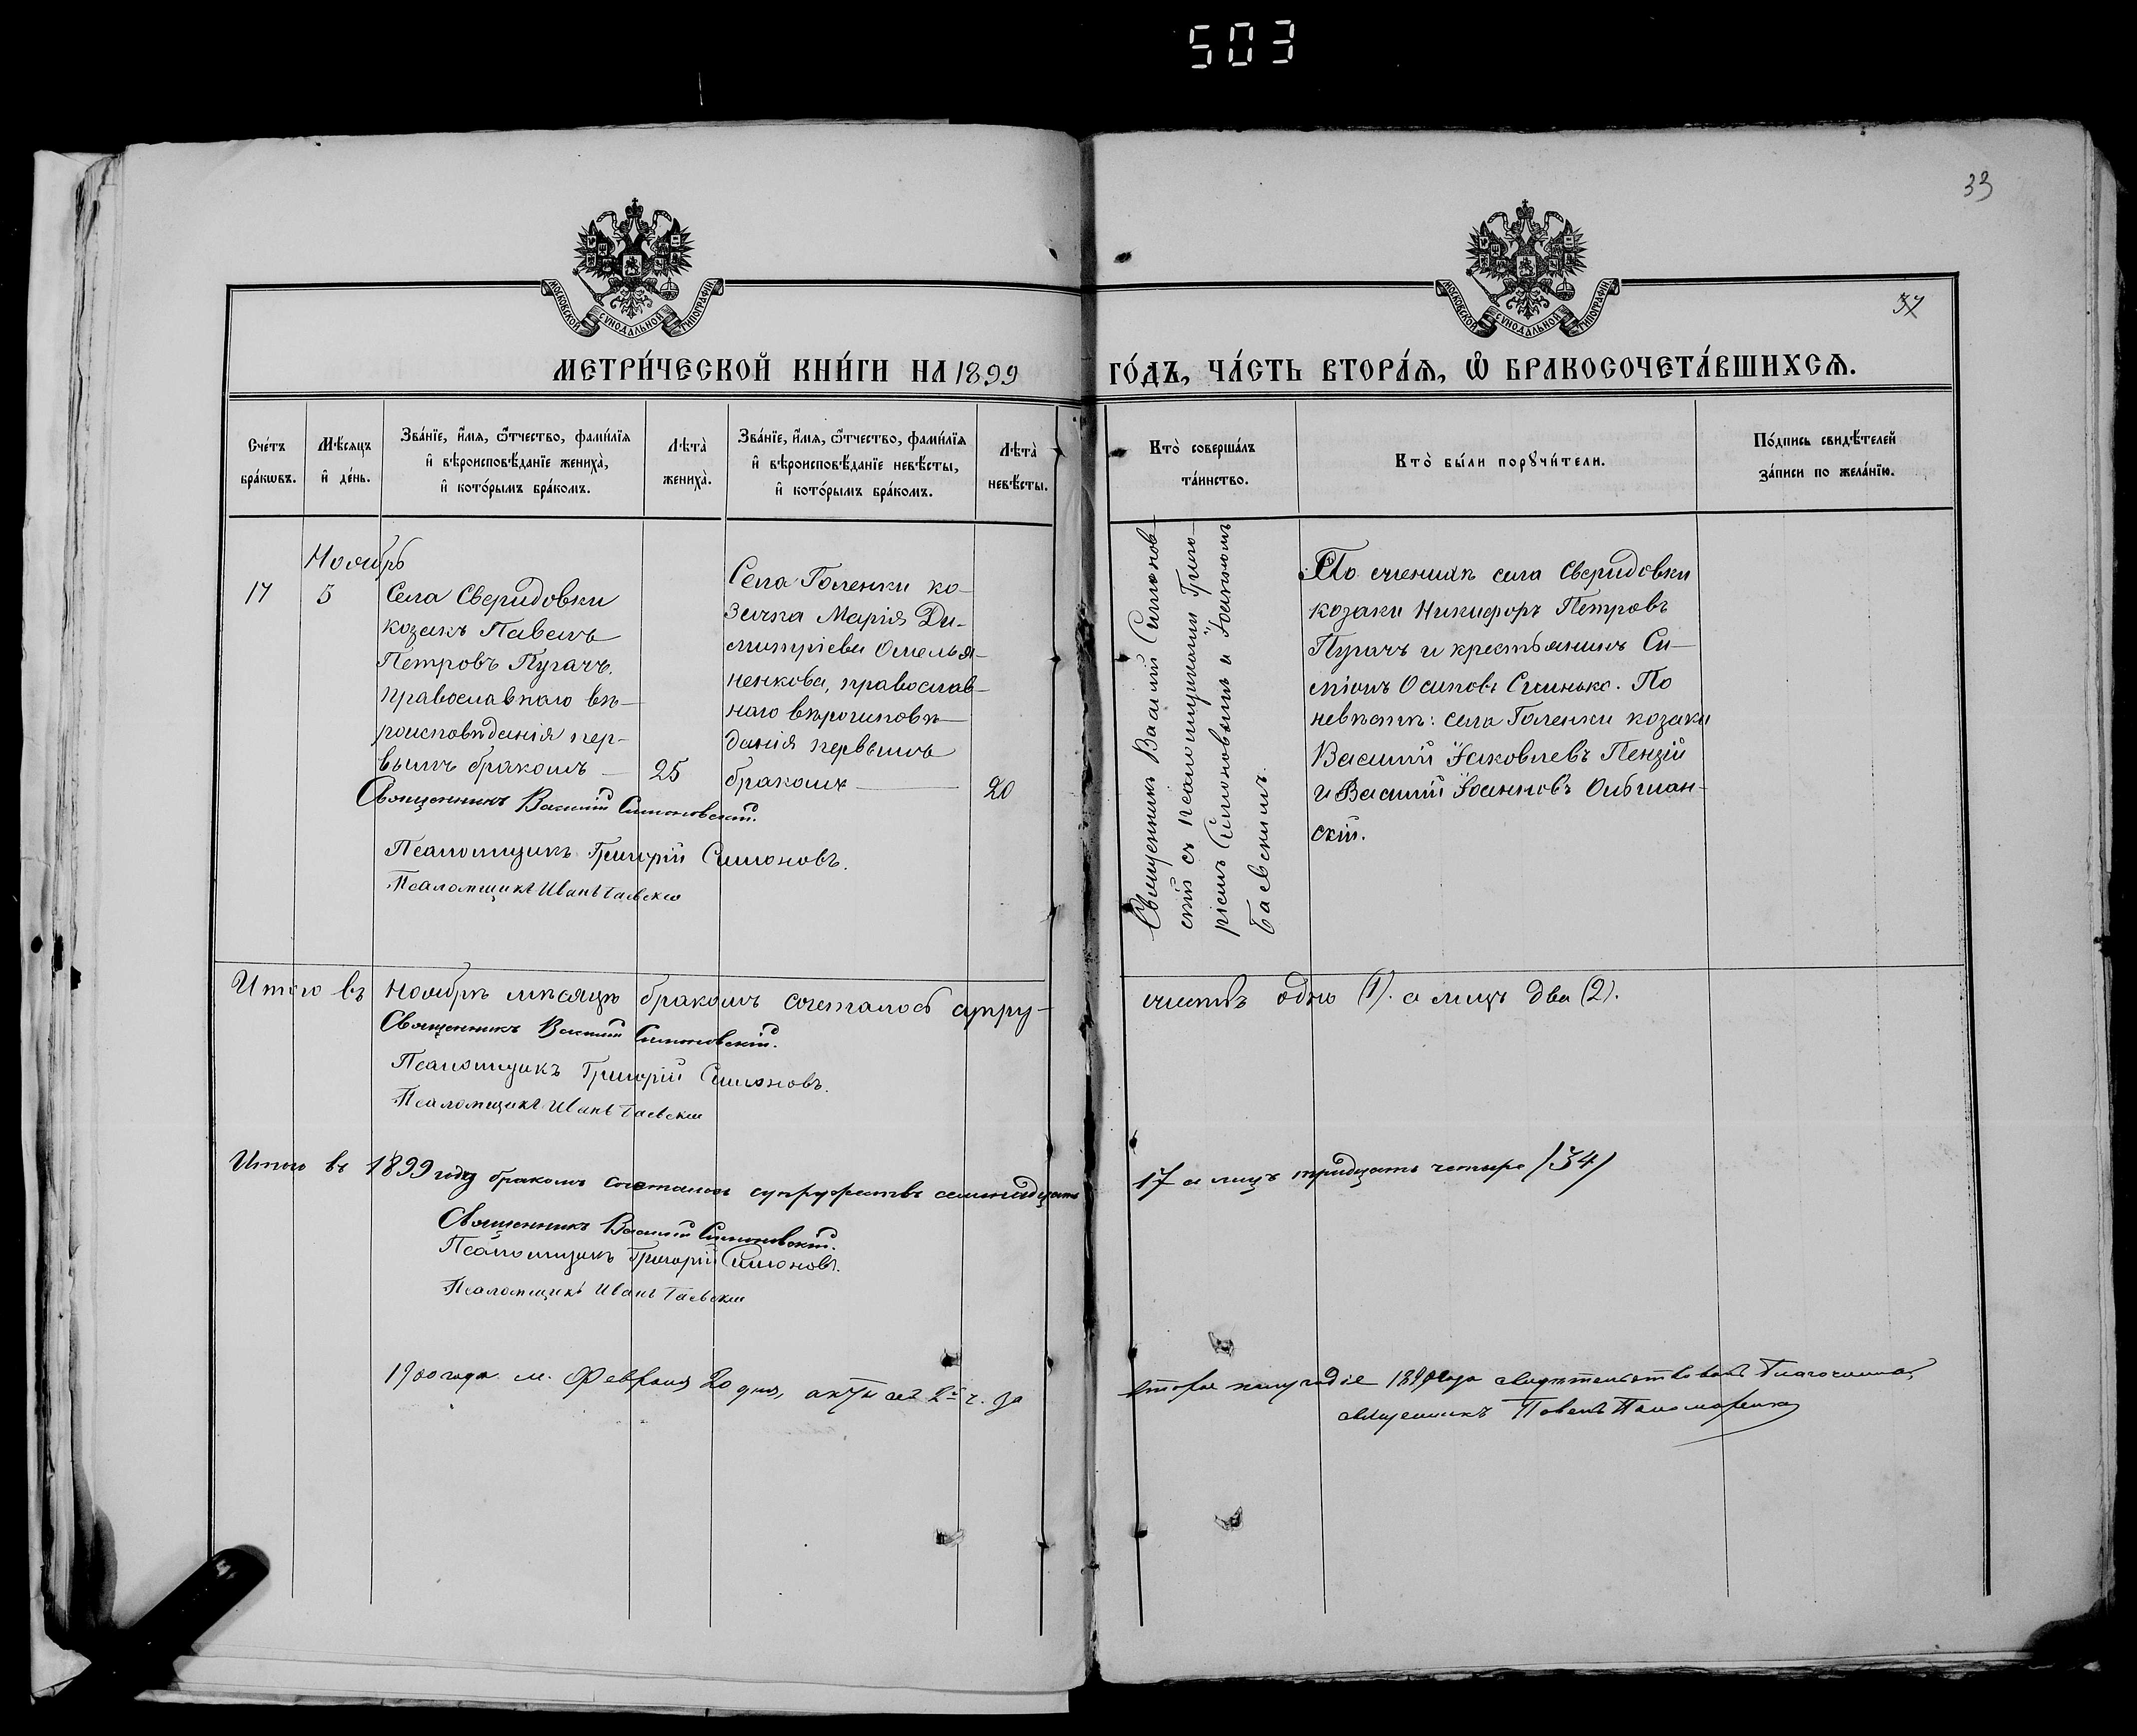 503
33
37
МОСКОВСКОЙ СУНОДАЛЬНОЙ ТИПОГРАФІИ
МОСКОВСКОЙ СУНОДАЛЬНОЙ ТИПОГРАФІИ
МЕТРИ́ЧЕСКОЙ КНИ́ГИ НА 1899 ГО́ДЪ, ЧА́СТЬ ВТОРА́Ѧ, Ѽ БРАКОСОЧЕТА́ВШИХСѦ.
Сче́тъ
бра́кѡвъ.
Мѣ́сяцъ
и҆ де́нь.
Зва́нїе, и҆́мѧ, ѻ҆́тчество, фами́лїѧ
и҆ вѣроисповѣ́данїе жениха̀,
и҆ кото́рымъ бра́комъ.
Лѣта̀
жениха̀.
Зва́нїе, и҆́мѧ, ѻ҆́тчество, фами́лїѧ
и҆ вѣроисповѣ́данїе невѣ́сты,
и҆ кото́рымъ бра́комъ.
Лѣта̀
невѣ́сты.
Кто̀ соверша́лъ
та́инство.
Кто̀ бы́ли порꙋчи́тели.
По́дпись свидѣ́телей
за́писи по жела́нїю.
17
Ноябрь
5
Села Свериdовки
козакъ Павелъ
Петровъ Пугачъ.
православнаго вѣ-
роисповѣданія пер-
вымъ бракомъ
25
Села Голенки ко-
зачка Марія Ди-
митріева Омелья-
ненкова, православ-
наго вѣроисповѣ-
данія первымъ
бракомъ
20
Священникъ Василій Симонов-
скій съ псаломщиками Григо-
ріемъ Симоновымъ и Іоанномъ
Гаевскимъ.
По женихѣ села Свериdовки
козаки Никифоръ Петровъ
Пугачъ и крестьянинъ Си-
меонъ Осиповъ По
невѣстѣ: села Голенки козаки
Василій Іаковлевъ Пензій
и Василій Іоанновъ Ольшан-
скій.
Священникъ Василій Симоновскій.
Псаломщикъ Григорій Симоновъ.
Псаломщикъ Иванъ Гаевскій
Итого въ Ноябрѣ мѣсяцѣ бракомъ сочеталось супру-
жествъ одно (1). а лицъ два (2).
Священникъ Василій Симоновскій.
Псаломщикъ Григорій Симоновъ.
Псаломщикъ Иванъ Гаевскій
Итого въ 1899 году бракомъ сочеталось супружествъ семнадцать
17 а лицъ тридцать четыре /34/
Священникъ Василій Симоновскій.
Псаломщикъ Григорій Симоновъ.
Псаломщикъ Иванъ Гаевскій
1900 года м. Февраля 20 дня, акты 2й ч. за
второе полугодіе 1899 года свидѣтельствовалъ Благочинный,
священникъ Павелъ Пономаренко